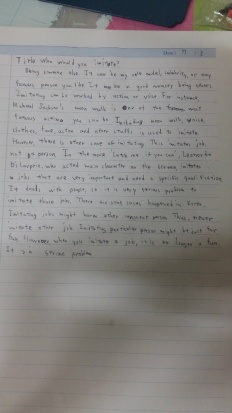 Title: Who would you imitate?
Being someone else. It can be my role model, celebrity, or any
famous person you like. It can be a good memory being others.
Imitating can be worked by action or voice. For instance
Michael Jackson's moon walk is one of the most
famous action you can be. Including moon walk, voice,
clothes, face, action and other stuffs is used to imitate.
However, there is other case of imitating. This imitate job,
not person. In the movie Catch me if you can, Leonardo
Dicaprio, who acted main character on the screen, imitates
a jobs that are very important and need a specific qualification.
It deals with people, so it is very serious problem to
imitate those job. There are some cases happened in Korea.
Imitating jobs might harm other innocent person. Thus, never
imitate other job. Imitating particular person might be just for
fun. However, when you imitate a job, it is no longer a fun.
It is a serious problem